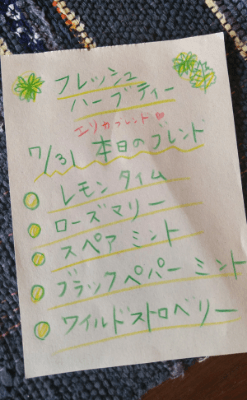 フレッシュ
ハーブティー
エリカブレンド♡
7/31 本日のブレンド
レモンタイム
ローズマリー
スペアミント
ブラックペパーミント
ワイルドストロベリー